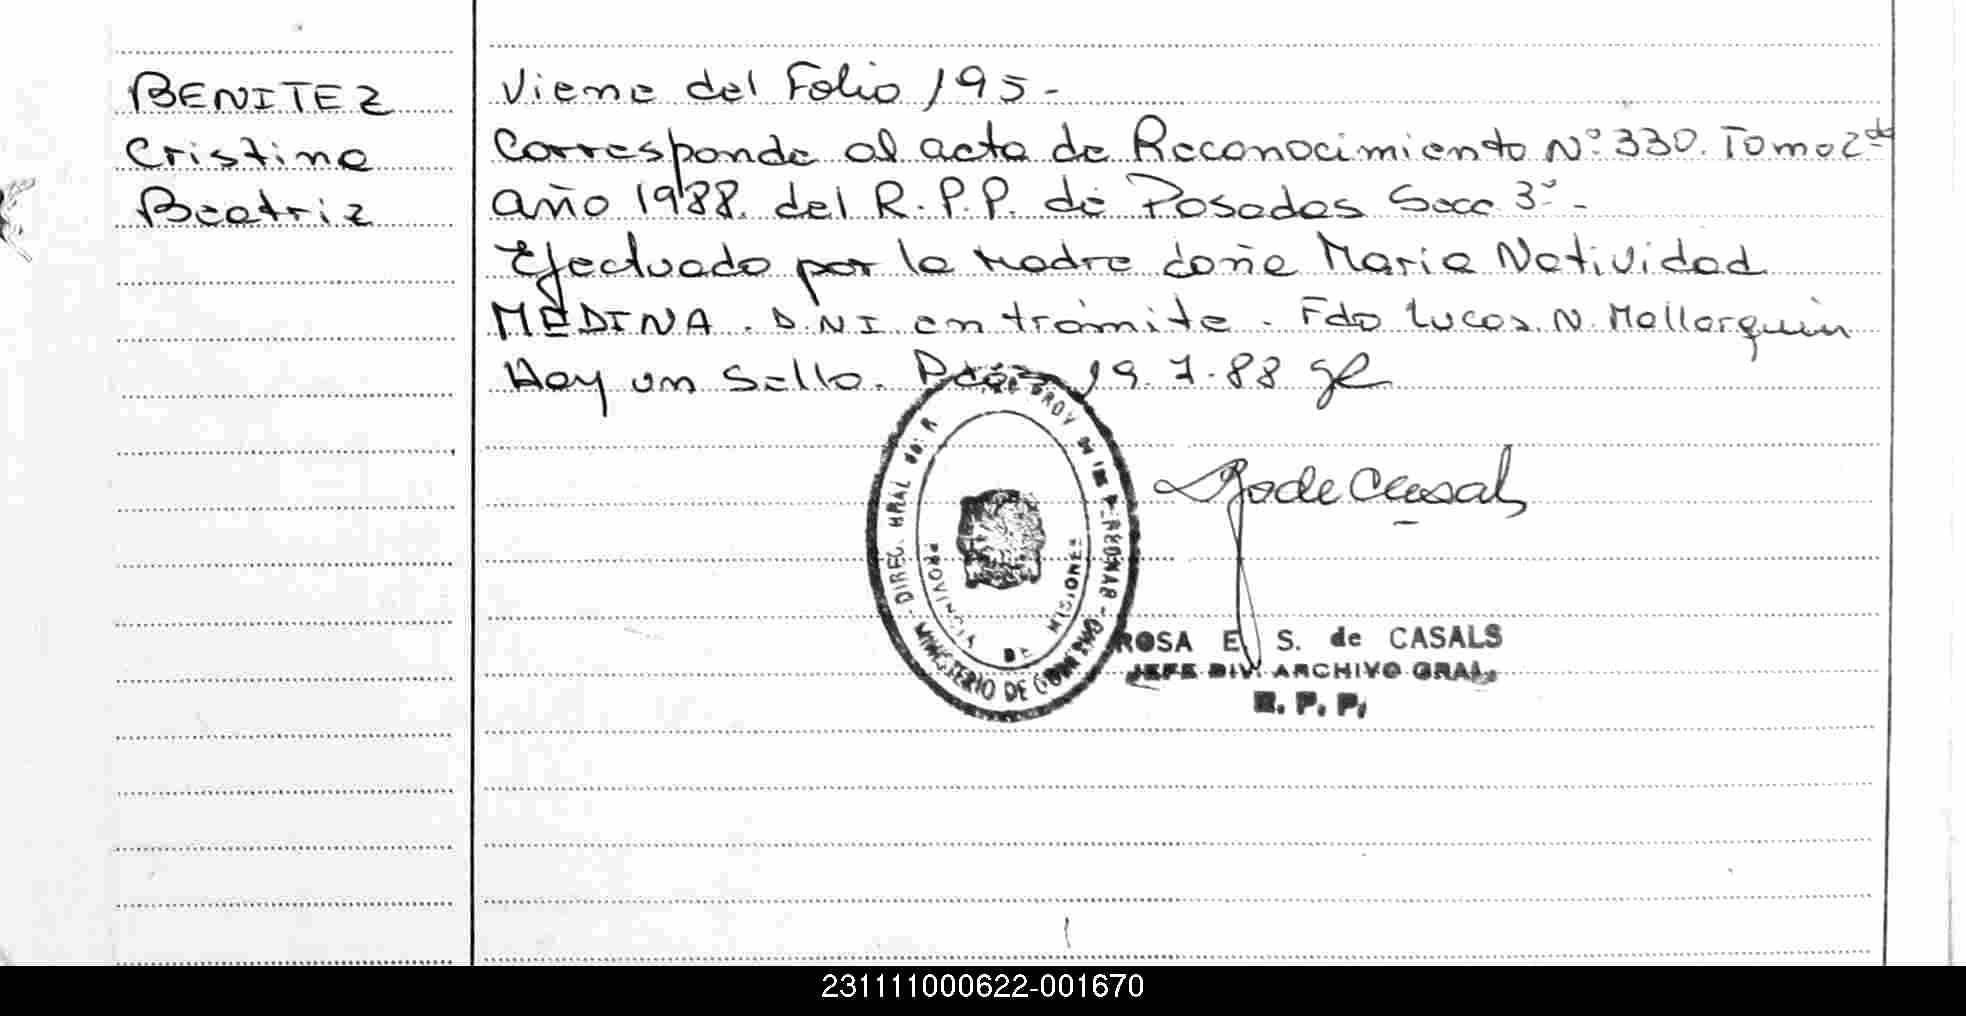 BENITEZ
Cristina
Beatriz
Viene del Folio 195-
Corresponde al acta de Reconocimiento Nº 330. Tomo 2do
año 1988. del R.P.P. de Posadas Secc 3º-
Efectuado por la madre doña Maria Natividad
MEDINA. D.N.I en trámite. Fdo Lucas. N. Mallorquin
Hay un Sello. Pdas 19.7.88
DIREC. GRAL DEL R PROV DE LAS PERSONAS - MINISTERIO DE GOBIERNO
PROVINCIA DE MISIONES
R de Casals
ROSA E. S. de CASALS
JEFE DIV. ARCHIVO GRAL.
R. P. P.
231111000622-001670